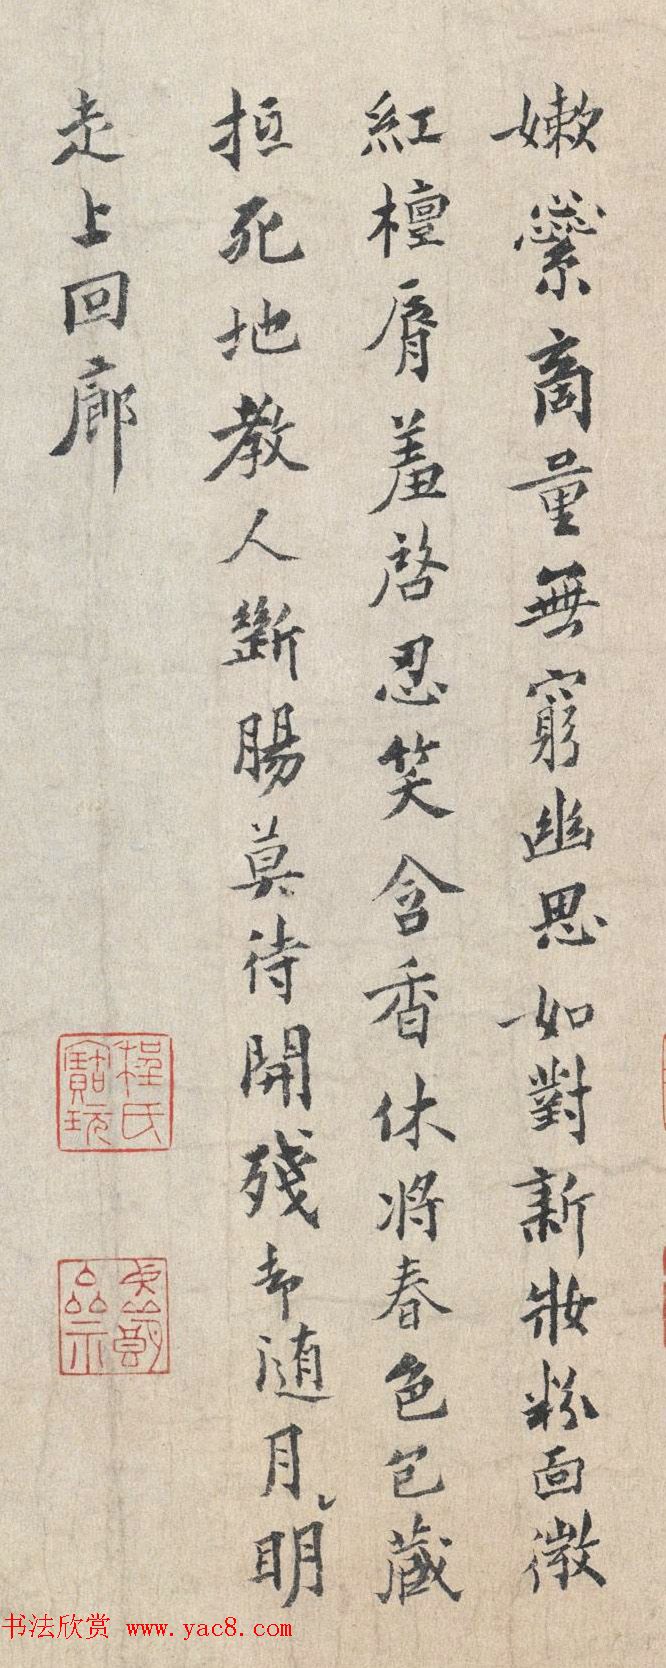 嫰蘂商量無窮幽思如對新妝粉面微
紅檀脣羞啓忍笑含香休將春色包藏
抵死地教人斷腸莫待開殘却随月明
走上回廊
程氏寶玩
书法欣赏 www.yac8.com